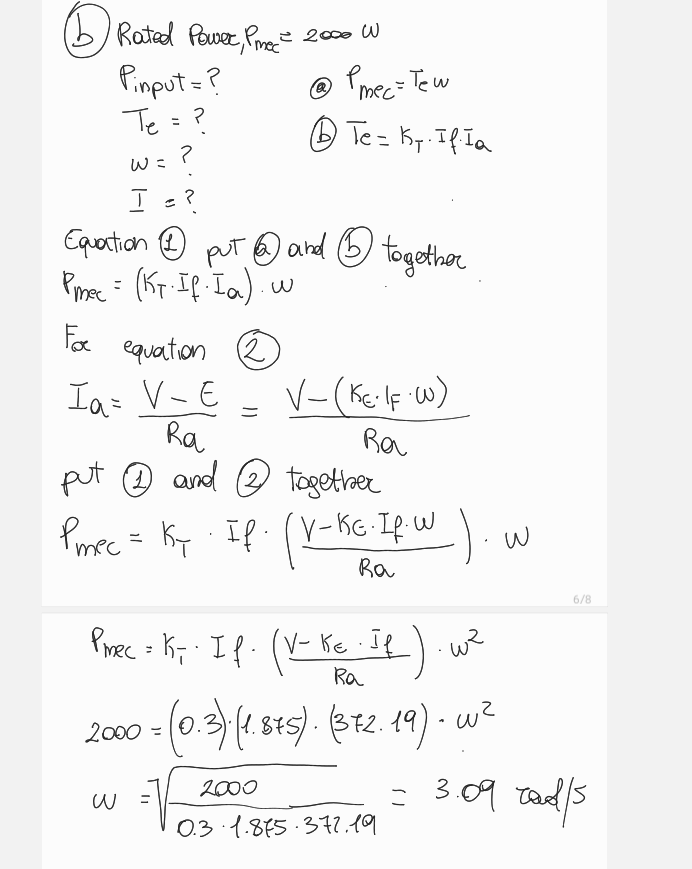 ⓑ Rated Power, Pmec = 2000 W
Pinput = ?
ⓐ Pmec = Te w
Te = ?
ⓑ Te = KT · If · Ia
w = ?
I = ?
Equation ① put ⓐ and ⓑ together
Pmec = (KT · If · Ia) · w
For equation ②
Ia = (V - E) / Ra = (V - (KE · IF · w)) / Ra
put ① and ② together
Pmec = KT · If · ((V - KE · If · w) / Ra) · w
6/8
Pmec = KT · If · ((V - KE · If) / Ra) · w²
2000 = (0.3) · (1.875) · (372.19) · w²
w = √(2000 / (0.3 · 1.875 · 372.19)) = 3.09 rad/s